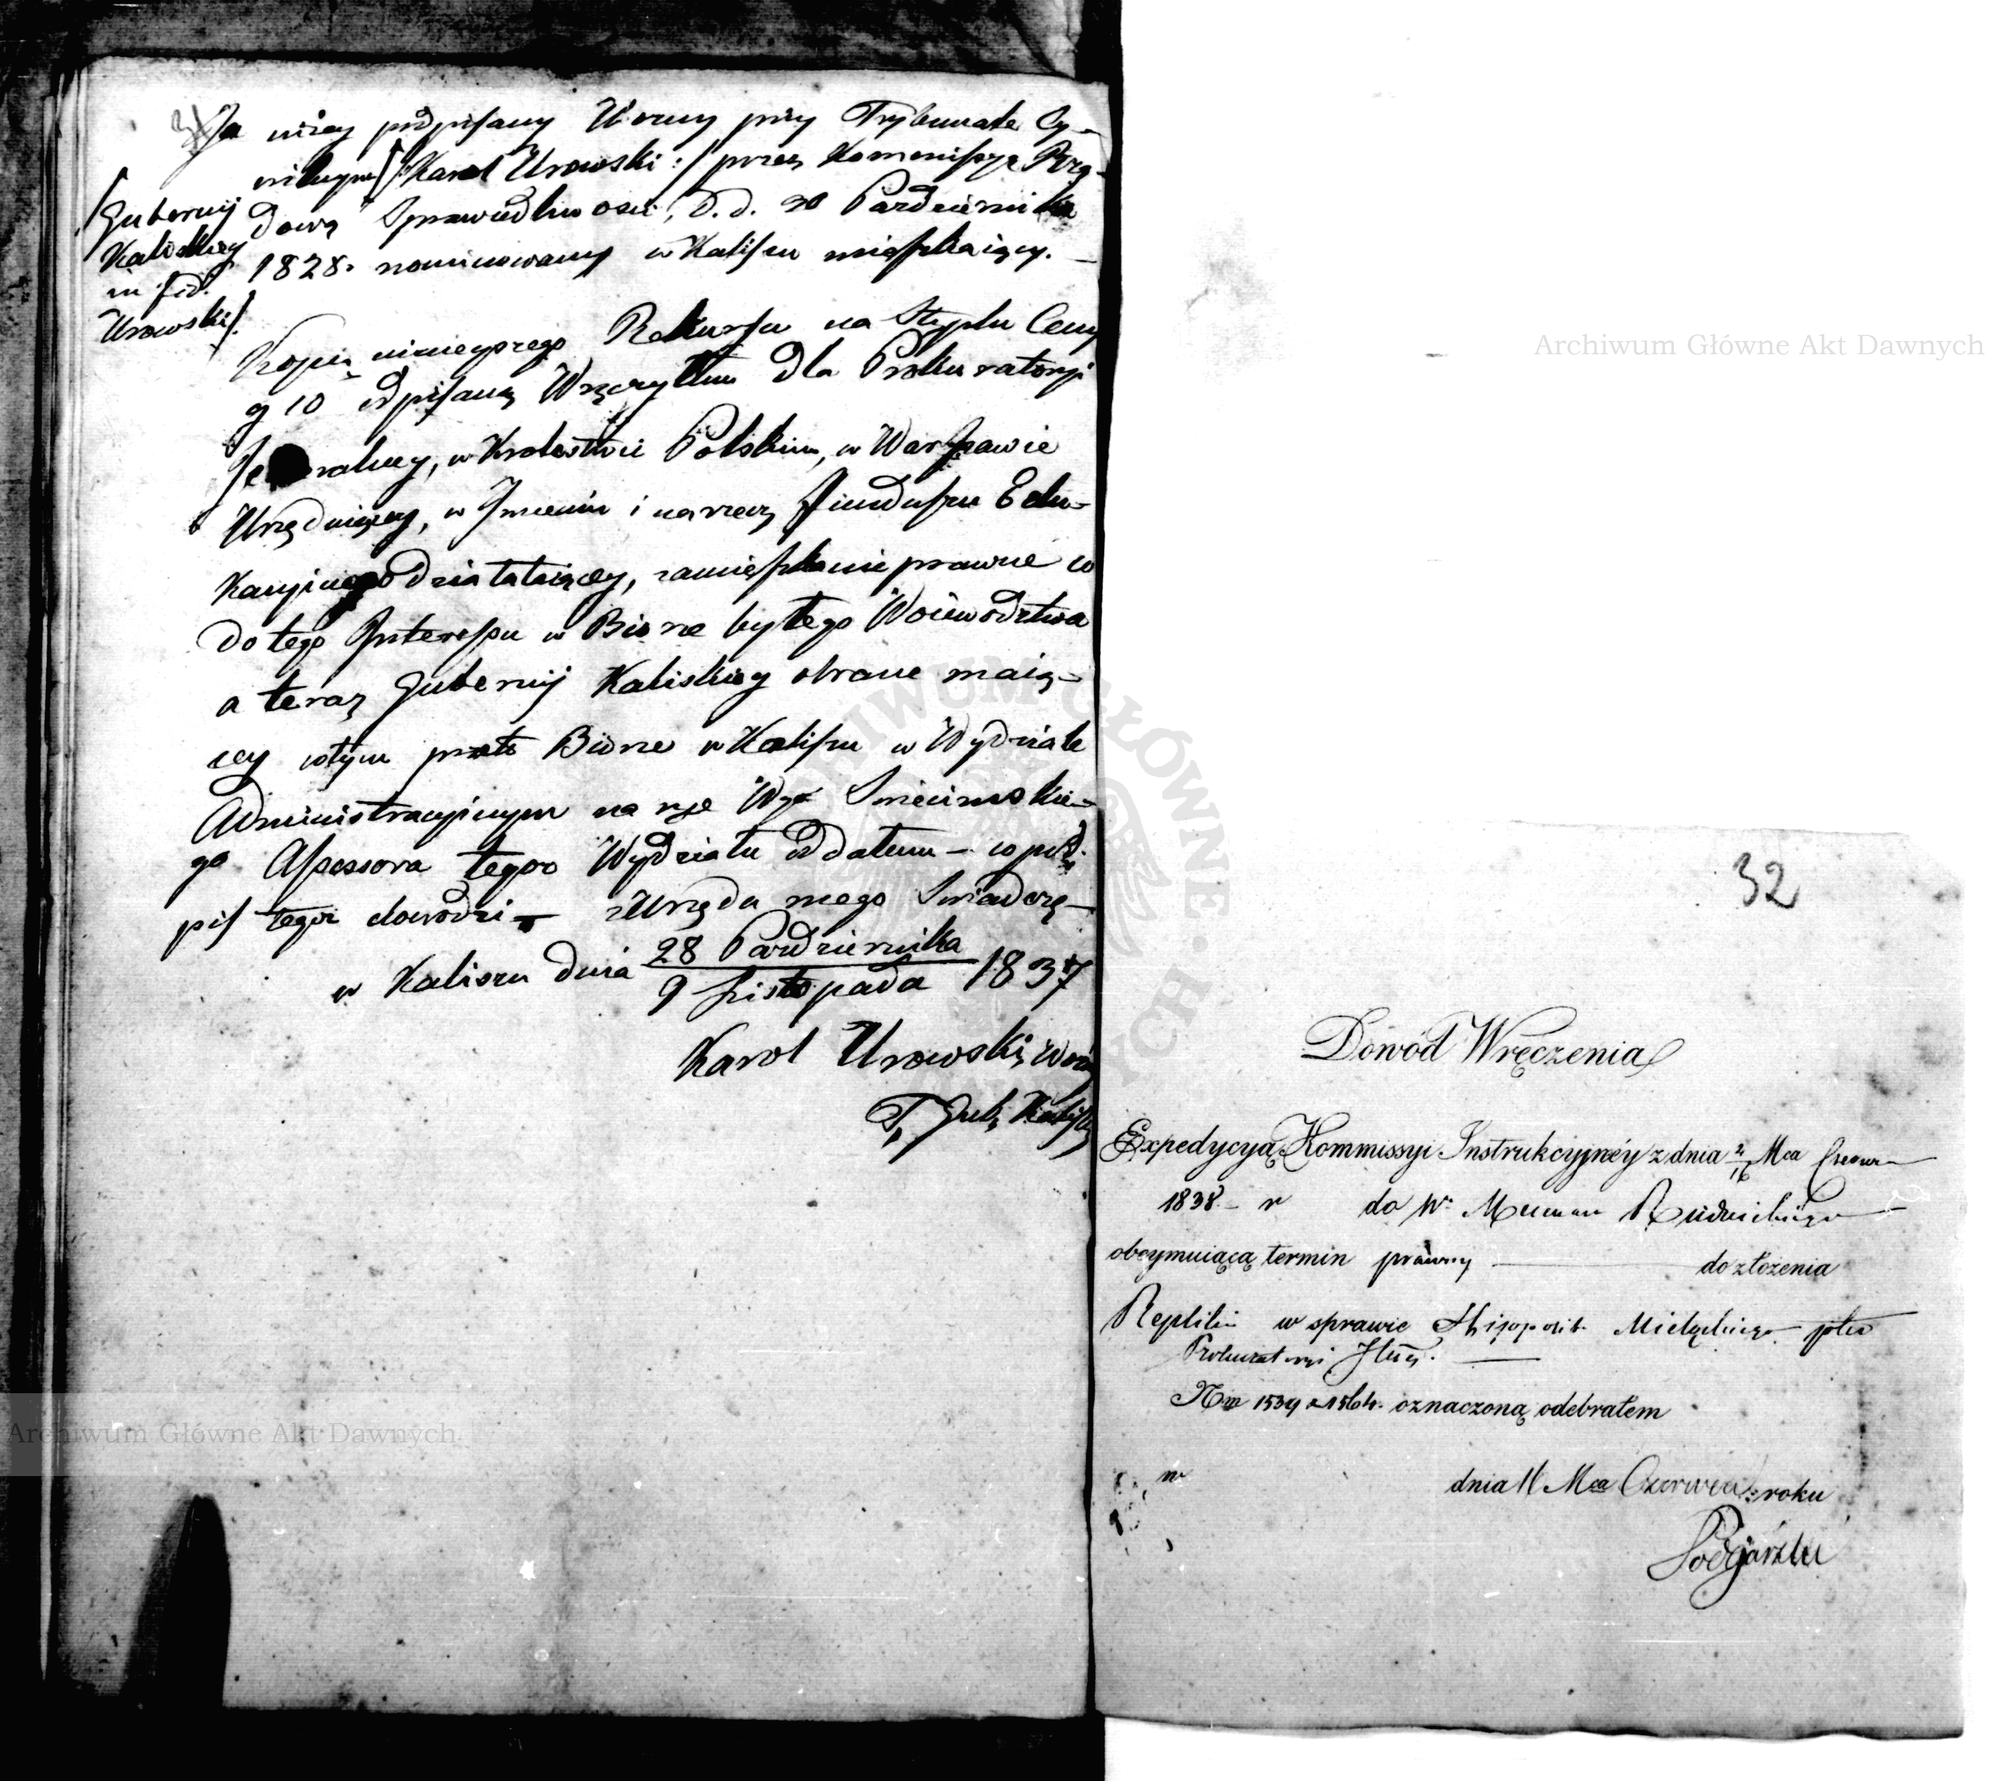 Ja niżey podpisany Woźny przy Trybunale Cy-
wilnym /:Karol Urowski:/ przez Kommissyą Rzą-
dową Sprawiedliwosci, d. d. 20 Pazdziernika
1828. nominowany w Kaliszu mieszkaiący. —
/Gubernij
Kaliskiey
in fid.
Urowski/.
Kopią ninieyszego Rekursu na Stęplu Ceny
g 10 odpisaną Wręczyłem dla Prokuratoryi
Jeneralney, w Krolestwie Polskim, w Warszawie
Urzęduiącey, w Imieniu i na rzecz Funduszu Edu-
kacyinego działaiącey, zamieszkanie prawne co
do tego Interessu w Biorze byłego Woiewodztwa
a teraz Gubernij Kaliskiey obrane maią-
cey w tym przeto Biorze w Kaliszu w Wydziale
Administracyinym na ręce Wgo
go Assessora tegoż Wydziału oddałem — co pod-
pis tegoż dowodzi — z Urzędu mego Swiadczę —
w Kaliszu dnia 28 Pazdziernika
9 Listopada 1837
Karol Urowski, Woźny
T. Gub. Kalisk
32
Dówód Wręczenia
Expedycyą Kommissyi Instrukcyjnéy z dnia Mca Czerw
1838 — r do W. Rudnickiego
obeymuiącą termin prawny — do złożenia
Repliki w sprawie Mielęckiego pko
Prokuratoryi
Nm 1539 1564. oznaczoną odebrałem
w dnia 11 Mca Czerwca roku
Podgórski
Archiwum Główne Akt Dawnych
Archiwum Główne Akt Dawnych
ARCHIWUM GŁÓWNE AKT DAWNYCH